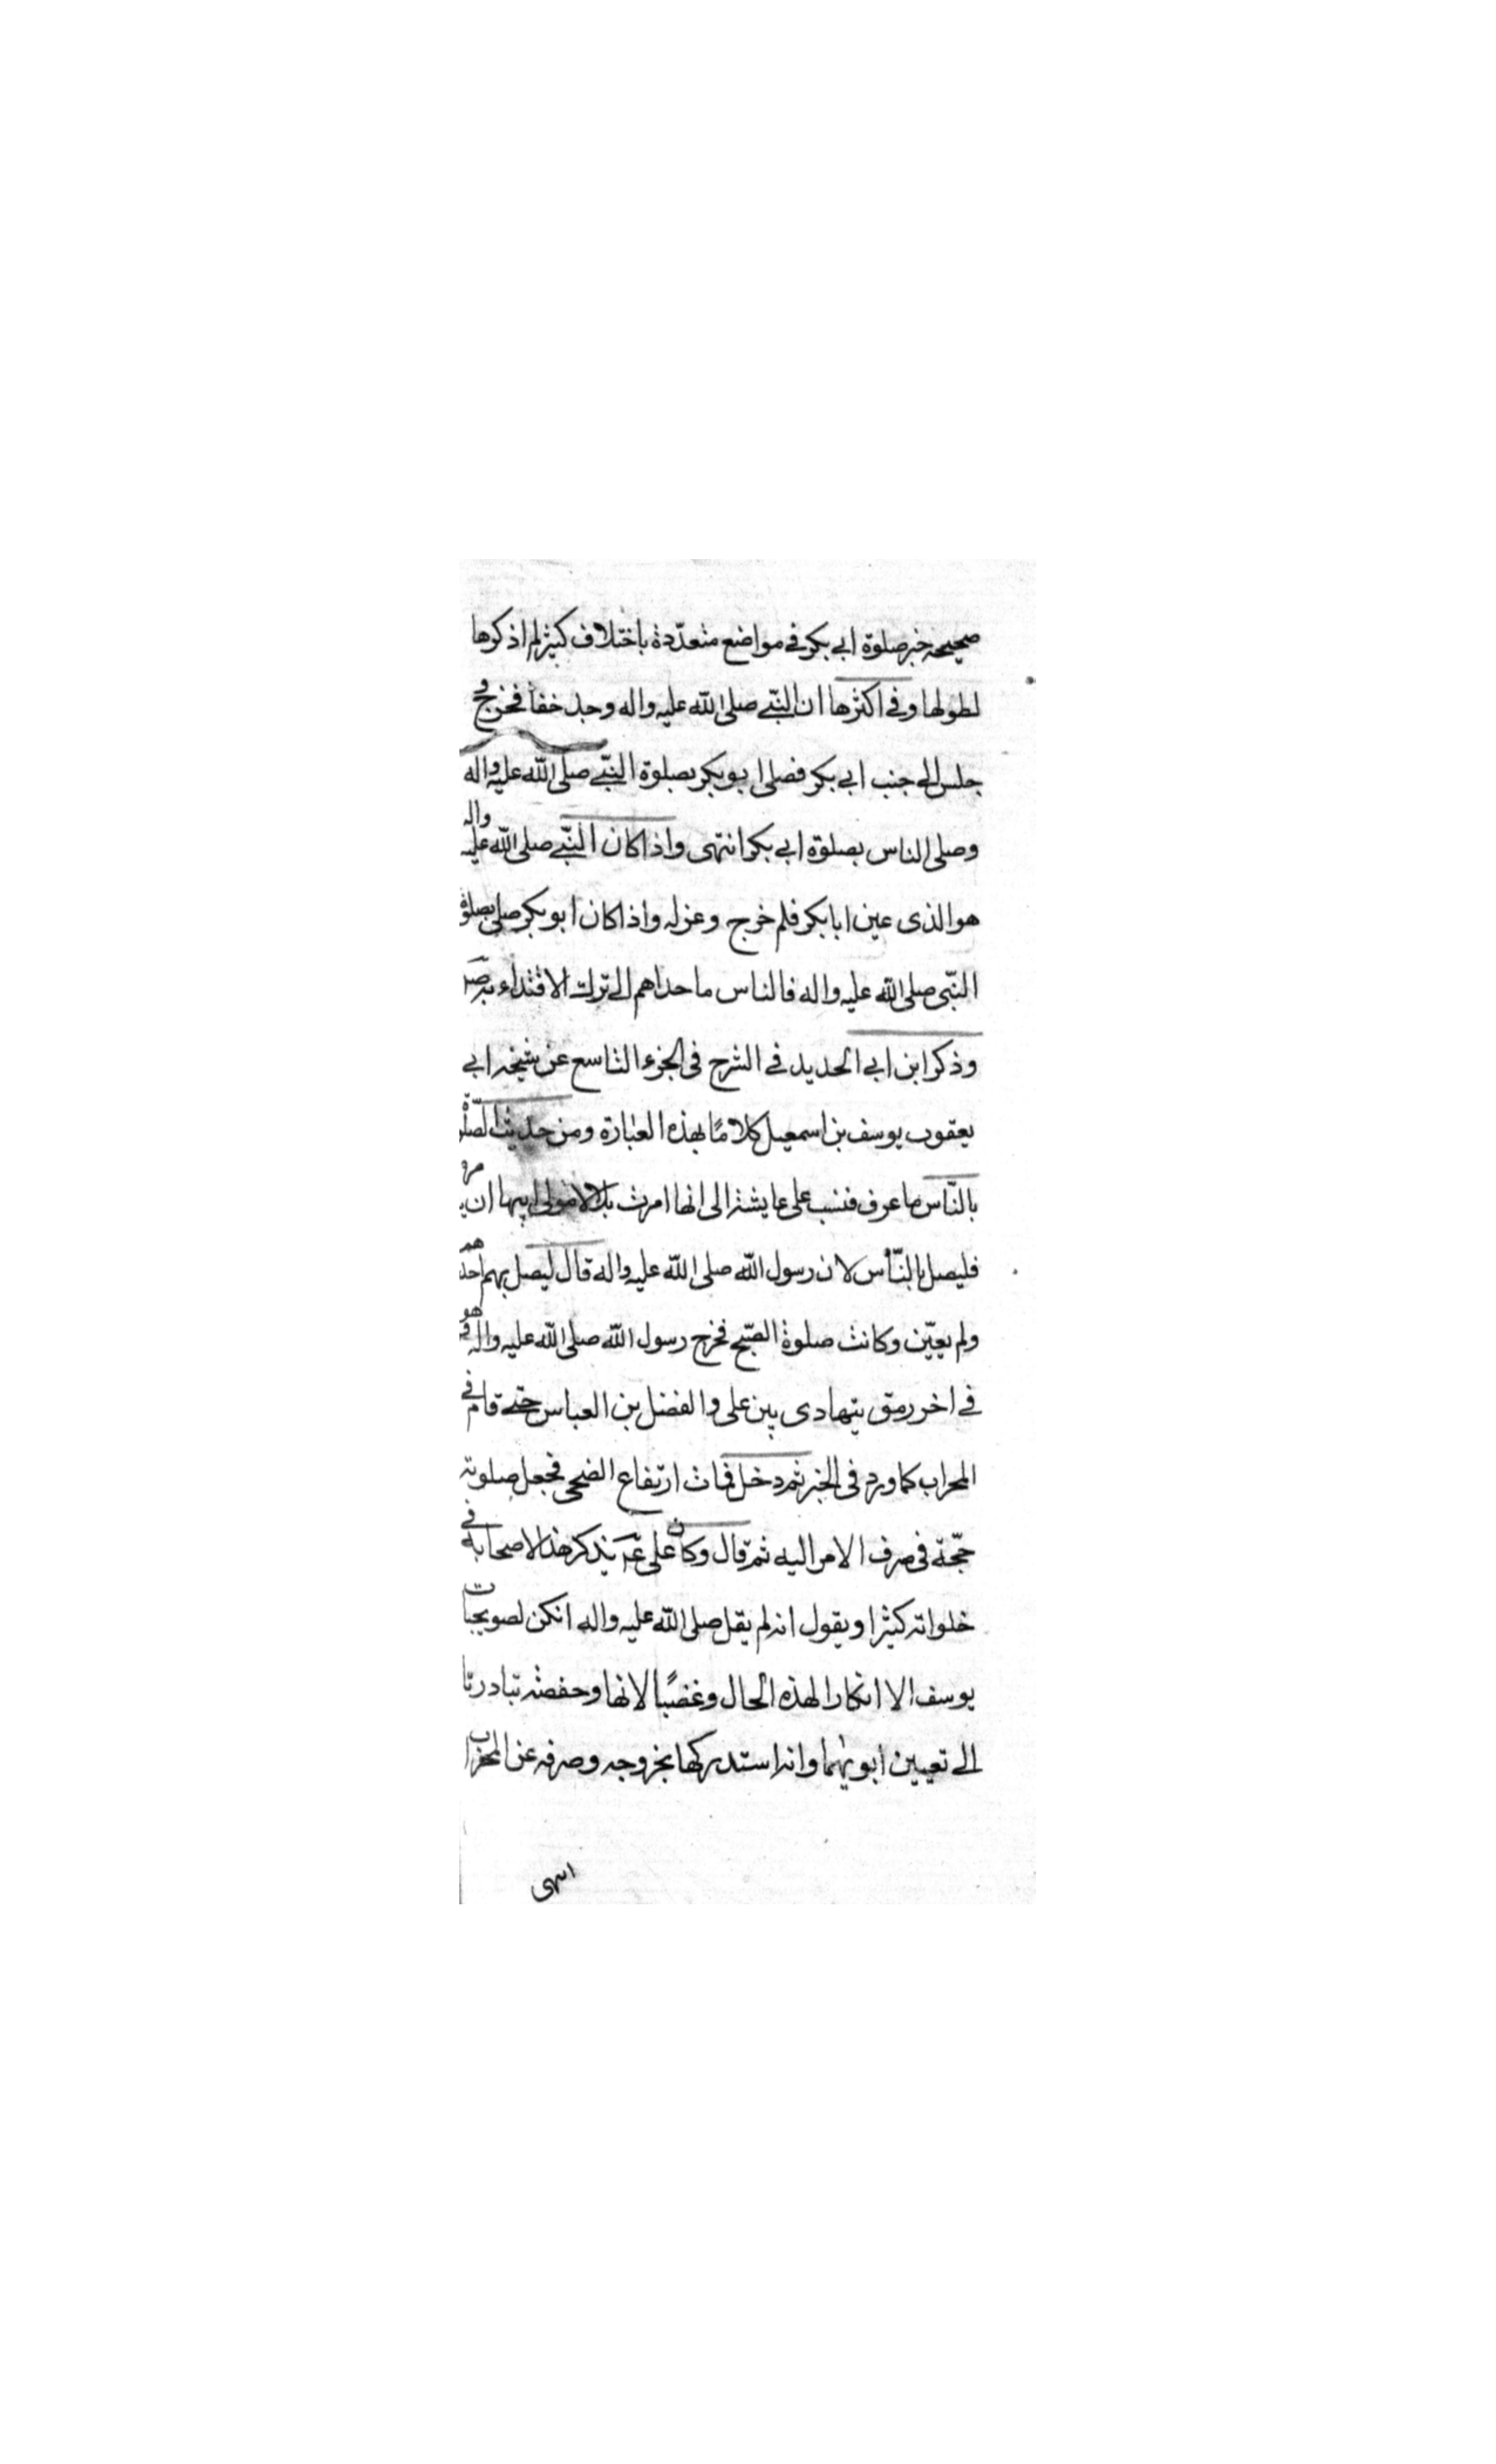 صحيحه خبر صلوة ابي بكر في مواضع متعدّدة باختلاف كثير لم اذكرها
لطولها وفي اكثرها ان النبّي صلى الله عليه واله وجد خفا فخرج و
جلس الى جنب ابي بكر فصلى ابو بكر بصلوة النبّي صلى الله عليه واله
وصلى الناس بصلوة ابي بكر انتهى واذا كان النبّي صلى الله عليه واله
هو الذى عين ابا بكر فلم خرج وعزله واذا كان ابو بكر صلى بصلوة
النبّى صلى الله عليه واله فالناس ما حداهم الى ترك الاقتداء به ص
وذكر ابن ابي الحديد في الشرح فى الجزء التاسع عن شيخه ابي
يعقوب يوسف بن اسمعيل كلامًا بهذه العبارة ومن حديث الصّلوة
بالنّاس ما عرف فنسب على عايشة الى انها امرت بلالا مولى ابيها ان يامره
فليصل بالنّاس لان رسول الله صلى الله عليه واله قال ليصل بهم احدهم
ولم يعيّن وكانت صلوة الصّبح فخرج رسول الله صلى الله عليه واله وهو
في اخر رمق يتهادى بين على والفضل بن العباس حتى قام في
المحراب كما ورد فى الخبر ثم دخل فمات ارتفاع الضحى فجعل صلوته
حجّة فى صرف الامر اليه ثم قال وكان على ع يذكر هذا لاصحابه في
خلواته كثيرا ويقول انه لم يقل صلى الله عليه واله انكن لصويحبات
يوسف الا انكارا لهذه الحال وغضبًا لانها وحفصة تبادرتا
الى تعيين ابويهما وانه استدركها بخروجه وصرفه عن المحراب
انتهى